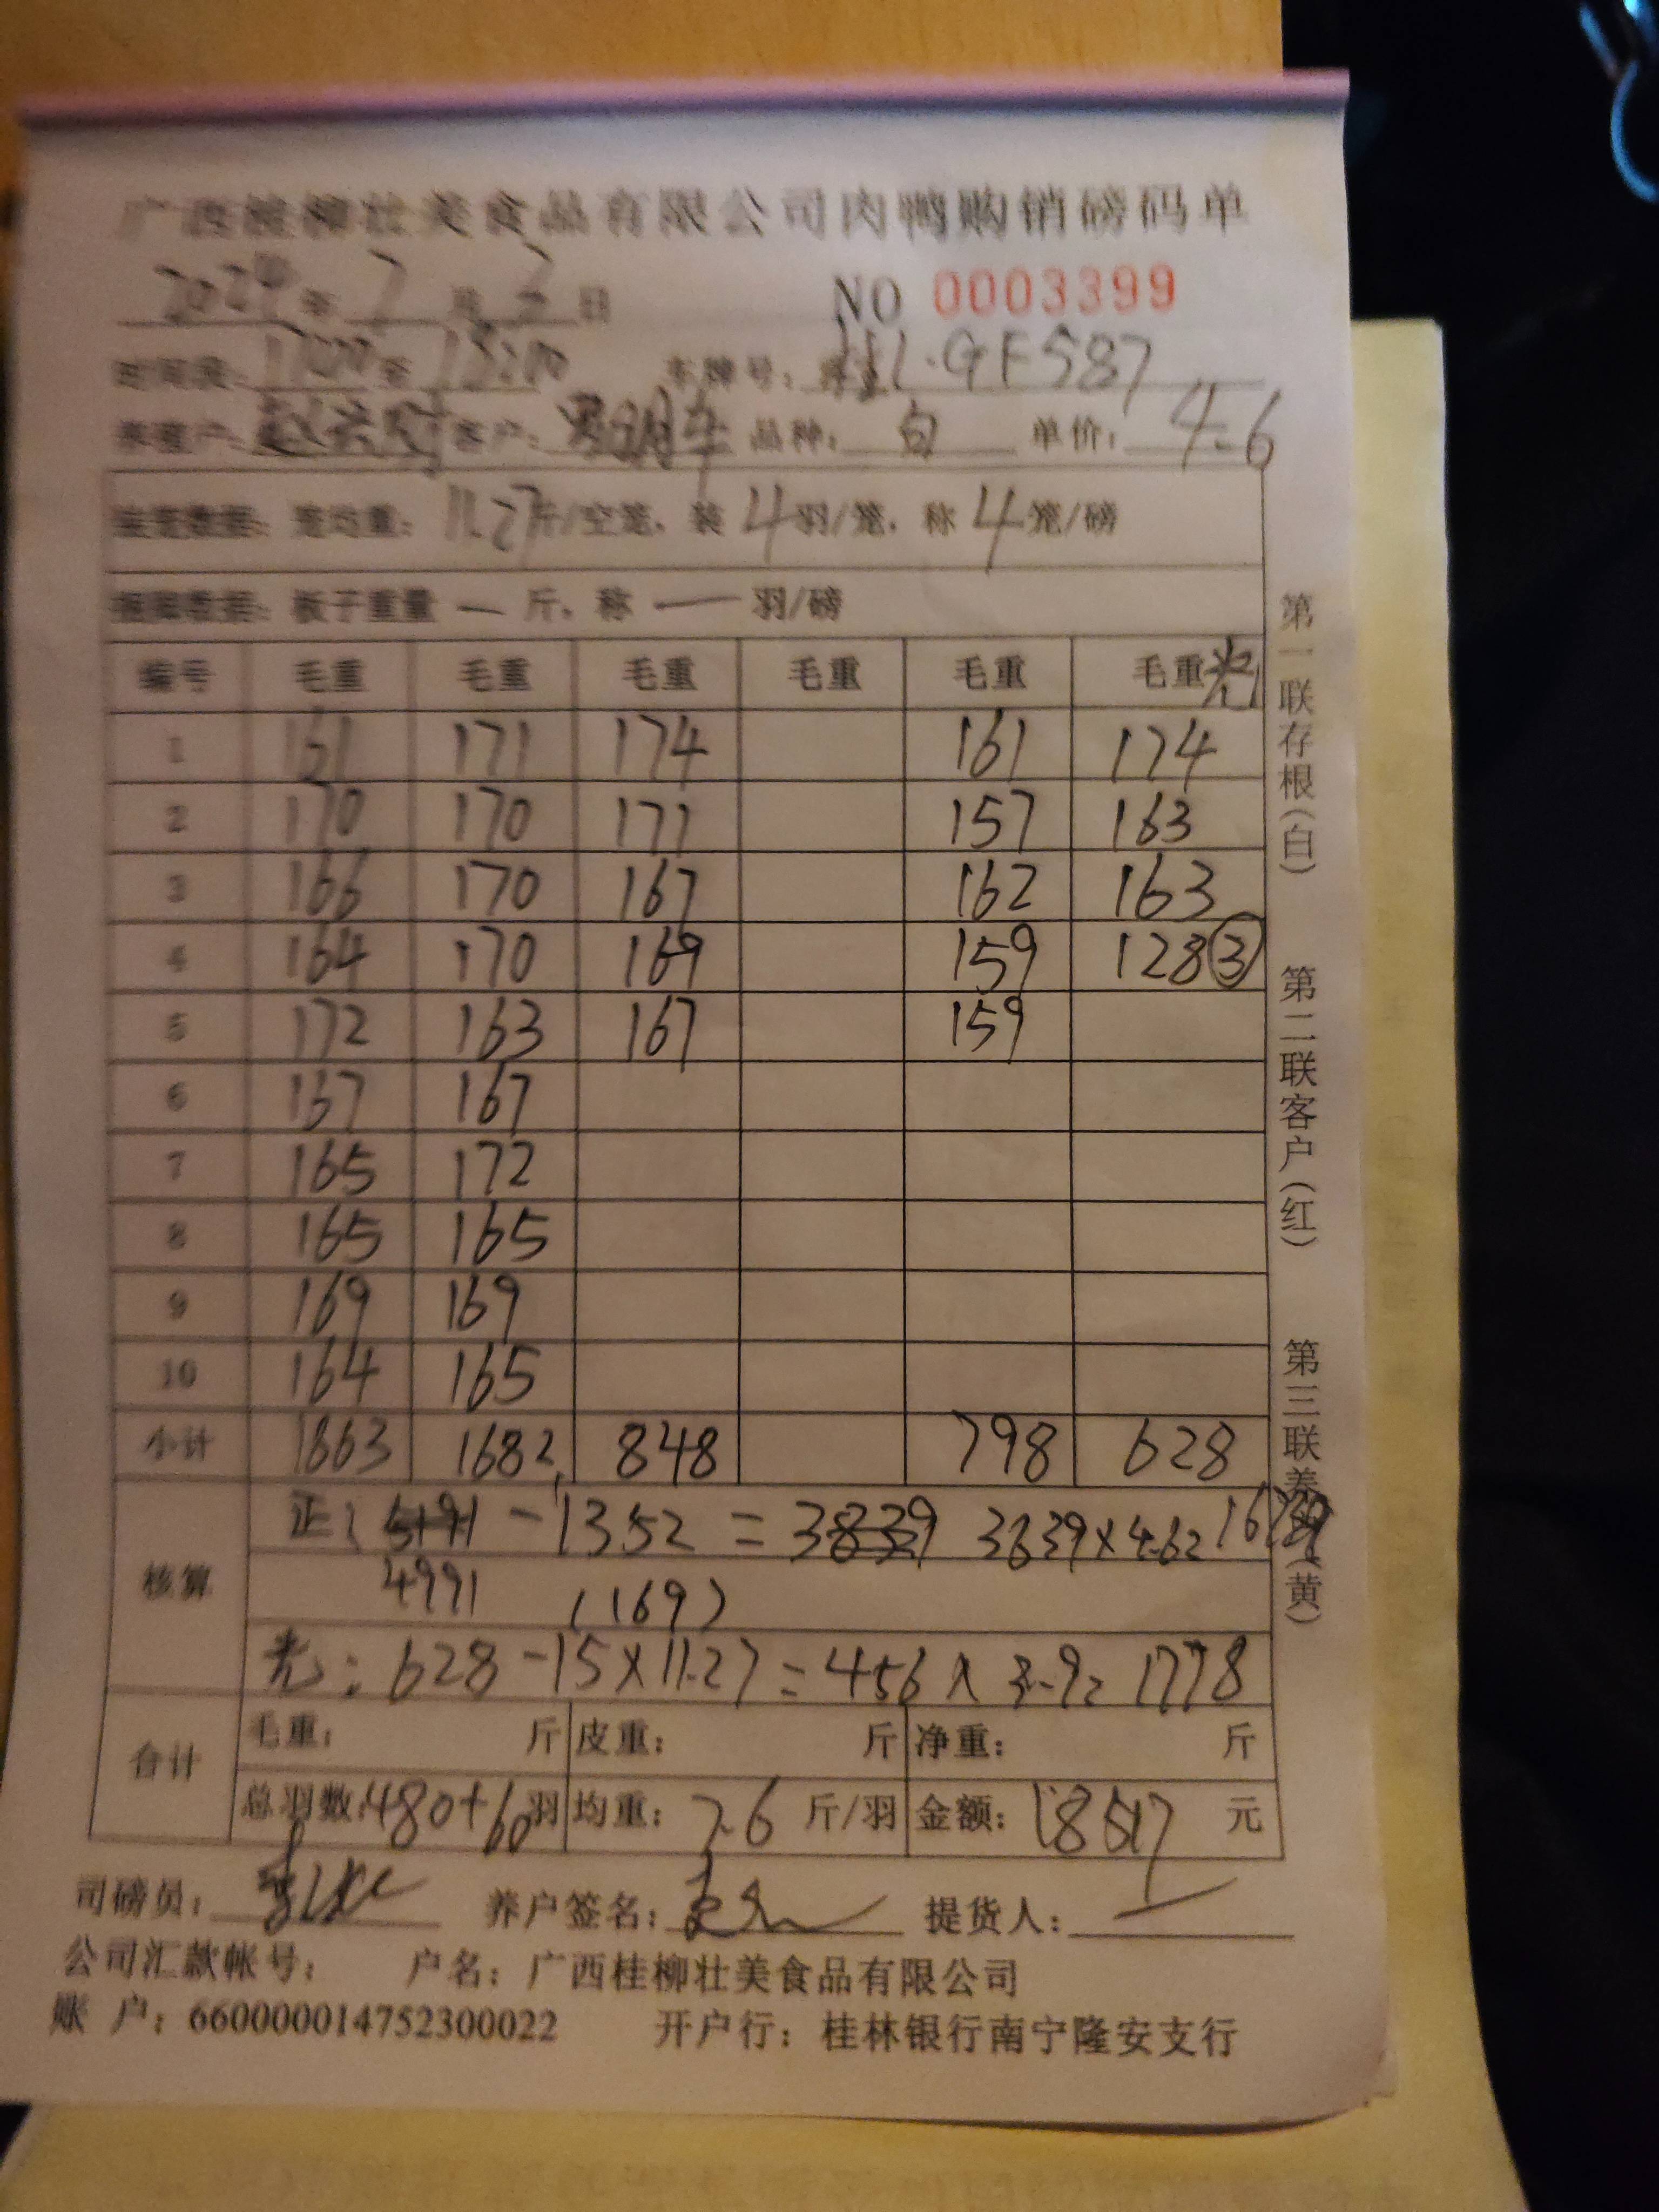 广西桂柳壮美食品有限公司肉鸭购销磅码单
2024年 2月 2日 NO 0003399
时间段: 至 车牌号: GF587
养殖户: 客户: 品种: 白 单价: 4.6
装笼数据: 笼均重: 11.27斤/空笼, 装 4羽/笼, 称 4笼/磅
板子重量 — 斤, 称 — 羽/磅
编号 毛重 毛重 毛重 毛重 毛重 毛重 光
1 161 171 174 161 174
2 170 170 171 157 163
3 166 170 167 162 163
4 164 170 169 159 128 ③
5 172 163 167 159
6 167 167
7 165 172
8 165 165
9 169 169
10 164 165
小计 1863 1682 848 798 628
核算
正: 5191 - 1352 = 3839 3639×4.6=
4991 (169)
光: 628 - 15×11.27 = 456 × 3.9= 1778
合计
毛重: 斤 皮重: 斤 净重: 斤
总羽数: 480+60羽 均重: 7.6 斤/羽 金额: 18517 元
司磅员: 养户签名: 提货人:
公司汇款帐号: 户名: 广西桂柳壮美食品有限公司
账 户: 660000014752300022 开户行: 桂林银行南宁隆安支行
第一联存根(白) 第二联客户(红) 第三联养 (黄)